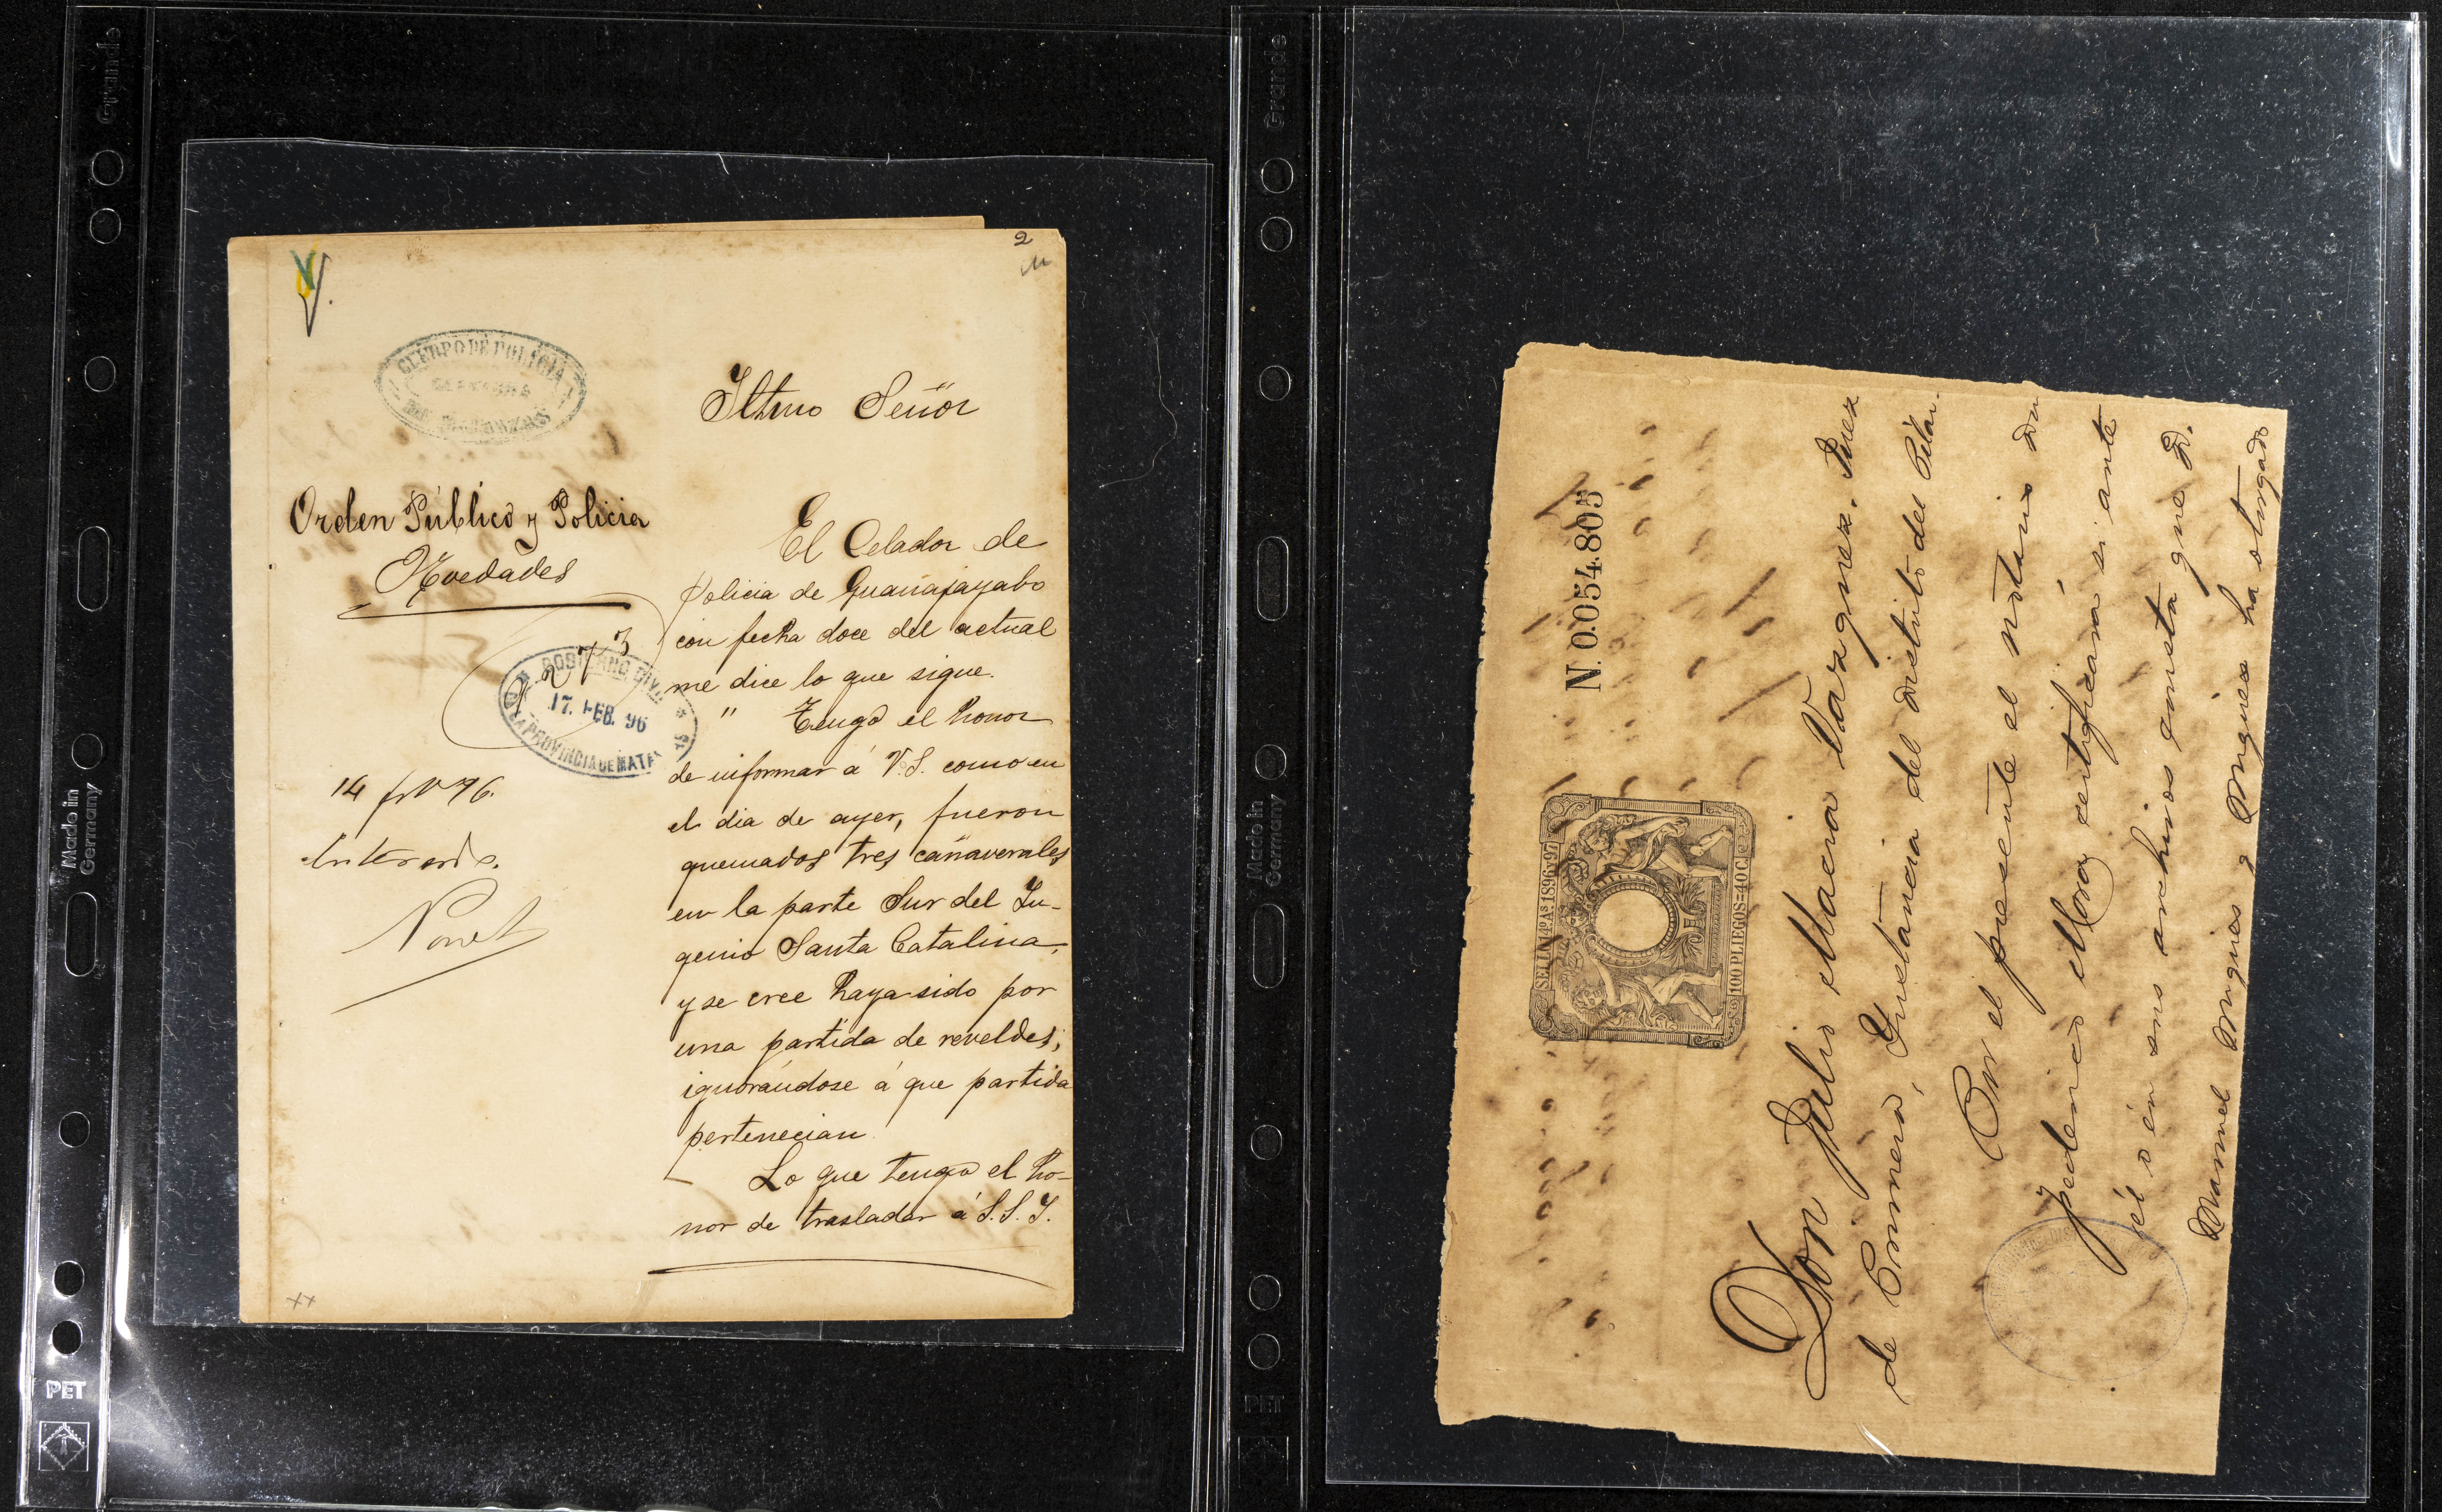 2
CUERPO DE POLICIA
DE MATANZAS
Iltmo Señor
Orden Público y Policia
Novedades
273
GOBIERNO CIVIL
17. FEB. 96
PROVINCIA DE MATA
14 96.
Norel
El Celador de
policia de Guanajayabo
con fecha doce del actual
me dice lo que sigue.
" Tengo el honor
de informar á V.S. como en
el dia de ayer, fueron
quemados tres cañaverales
en la parte Sur del In-
genio Santa Catalina,
y se cree haya sido por
una partida de reveldes,
ignorándose á que partida
pertenecian
Lo que tengo el ho-
nor de trasladar á S.S.I.
xx
Grande
Made in
Germany
PET
Grande
Made in
Germany
PET
N. 0.054.805
SELLO 14º AS 1896 Y 97
100 PLIEGOS=40 C.
Don Julio Macia Vazquez, Juez
de Primera Instancia del distrito del Pilar.
Por el presente el notario Don
Federico Mora certificará si ante
él o en sus archivos consta que D.
Manuel Muguiea y Muguiea ha otorgado